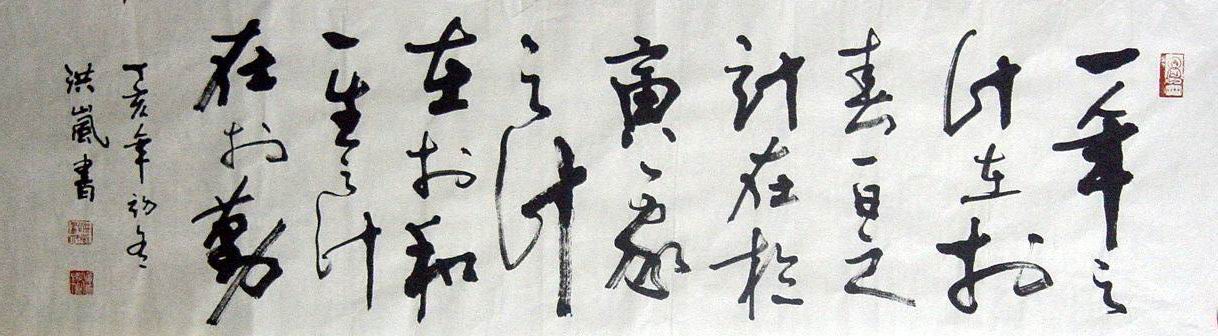 一年之
计在於
春一日之
計在於
寅一家
之计
在於和
一生之计
在於勤
丁亥年初冬
洪嵐書